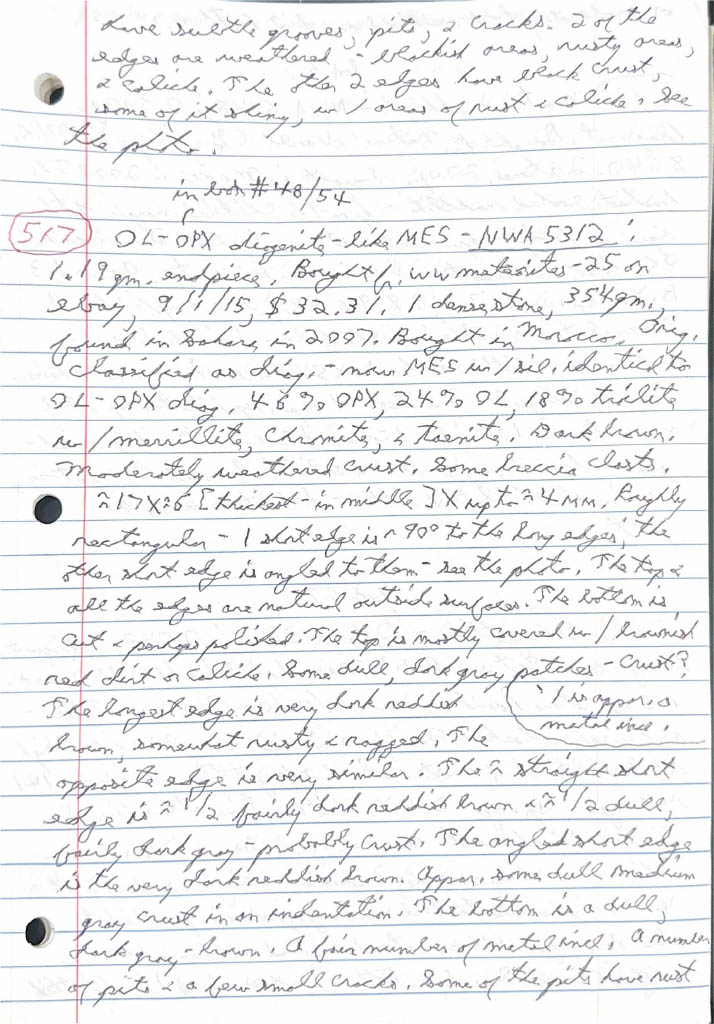 have subtle grooves, pits, & cracks. 2 of the
edges are weathered - blackish areas, rusty areas,
& caliche. The other 2 edges have black crust,
some of it shiny, w/ areas of rust & caliche. See
the photo.
in box #48/54
517 OL-OPX diogenite-like MES - NWA 5312:
1.19 gm. endpiece. Bought fr. ww meteorites-25 on
ebay, 9/1/15, $32.31. 1 dense stone, 354 gm.,
found in Sahara in 2007. Bought in Morocco. Orig.
classified as diog. - now MES w/ sil. identical to
OL-OPX diog. 46% OPX, 24% OL, 18% troilite
w/ merrillite, chromite, & taenite. Dark brown.
Moderately weathered crust. Some breccia clasts.
≈17X≈6 [thickest - in middle] X up to ≈4 mm. Roughly
rectangular - 1 short edge is ≈ 90° to the long edges; the
other short edge is angled to them - see the photo. The top &
all the edges are natural outside surfaces. The bottom is
cut & perhaps polished. The top is mostly covered w/ brownish
red dirt or caliche. Some dull, dark gray patches - crust?
The longest edge is very dark reddish
1 is appar. a
metal incl.
brown, somewhat rusty & ragged. The
opposite edge is very similar. The ≈ straight short
edge is ≈ 1/2 fairly dark reddish brown & ≈ 1/2 dull,
fairly dark gray - probably crust. The angled short edge
is the very dark reddish brown. Appar. some dull medium
gray crust in an indentation. The bottom is a dull,
dark gray-brown. A fair number of metal incl. A number
of pits & a few small cracks. Some of the pits have rust